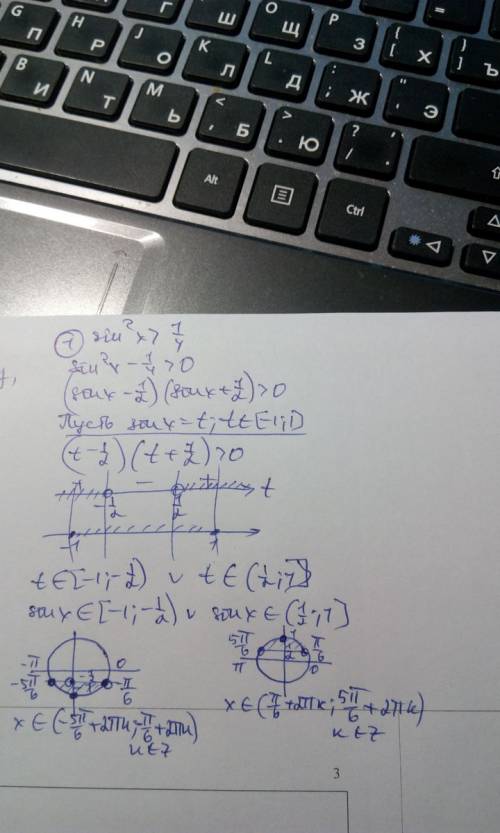 G П H Р J О K Ш O Щ P З { [ Х } ] Ъ
Л L Д : ; Ж " ' Э
B И N Т M Ь < , Б > . Ю ? / .
Alt Ctrl
① sin²x > 1/4
sin²x - 1/4 > 0
(sinx - 1/2)(sinx + 1/2) > 0
Пусть sinx = t; t ∈ [-1; 1]
(t - 1/2)(t + 1/2) > 0
+ - + t
-1/2 1/2
-1 1
t ∈ [-1; -1/2) ∨ t ∈ (1/2; 1]
sinx ∈ [-1; -1/2) ∨ sinx ∈ (1/2; 1]
-π 0 5π/6 1 π/6
-5π/6 -1/2 -π/6 π 1/2 0
x ∈ (-5π/6 + 2πk; -π/6 + 2πk) x ∈ (π/6 + 2πk; 5π/6 + 2πk)
k ∈ Z k ∈ Z
3